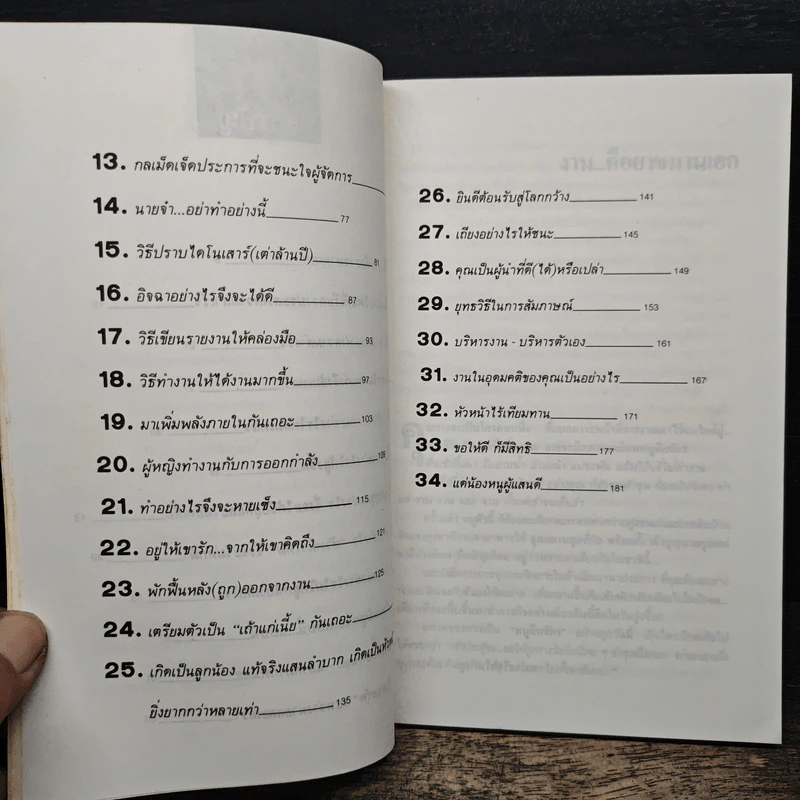 13. กลเม็ดเจ็ดประการที่จะชนะใจผู้จัดการ
14. นายจ๋า...อย่าทำอย่างนี้ 77
15. วิธีปราบไดโนเสาร์(เต่าล้านปี) 81
16. อิจฉาอย่างไรจึงจะได้ดี 87
17. วิธีเขียนรายงานให้คล่องมือ 93
18. วิธีทำงานให้ได้งานมากขึ้น 97
19. มาเพิ่มพลังภายในกันเถอะ 103
20. ผู้หญิงทำงานกับการออกกำลัง 109
21. ทำอย่างไรจึงจะหายเซ็ง 115
22. อยู่ให้เขารัก...จากให้เขาคิดถึง 121
23. พักฟื้นหลัง(ถูก)ออกจากงาน 125
24. เตรียมตัวเป็น "เถ้าแก่เนี้ย" กันเถอะ
25. เกิดเป็นลูกน้อง แท้จริงแสนลำบาก เกิดเป็น
ยิ่งยากกว่าหลายเท่า 135
26. ยินดีต้อนรับสู่โลกกว้าง 141
27. เถียงอย่างไรให้ชนะ 145
28. คุณเป็นผู้นำที่ดี(ได้)หรือเปล่า 149
29. ยุทธวิธีในการสัมภาษณ์ 153
30. บริหารงาน - บริหารตัวเอง 161
31. งานในอุดมคติของคุณเป็นอย่างไร 167
32. หัวหน้าไร้เทียมทาน 171
33. ขอให้ดี ก็มีสิทธิ 177
34. แด่น้องหนูผู้แสนดี 181